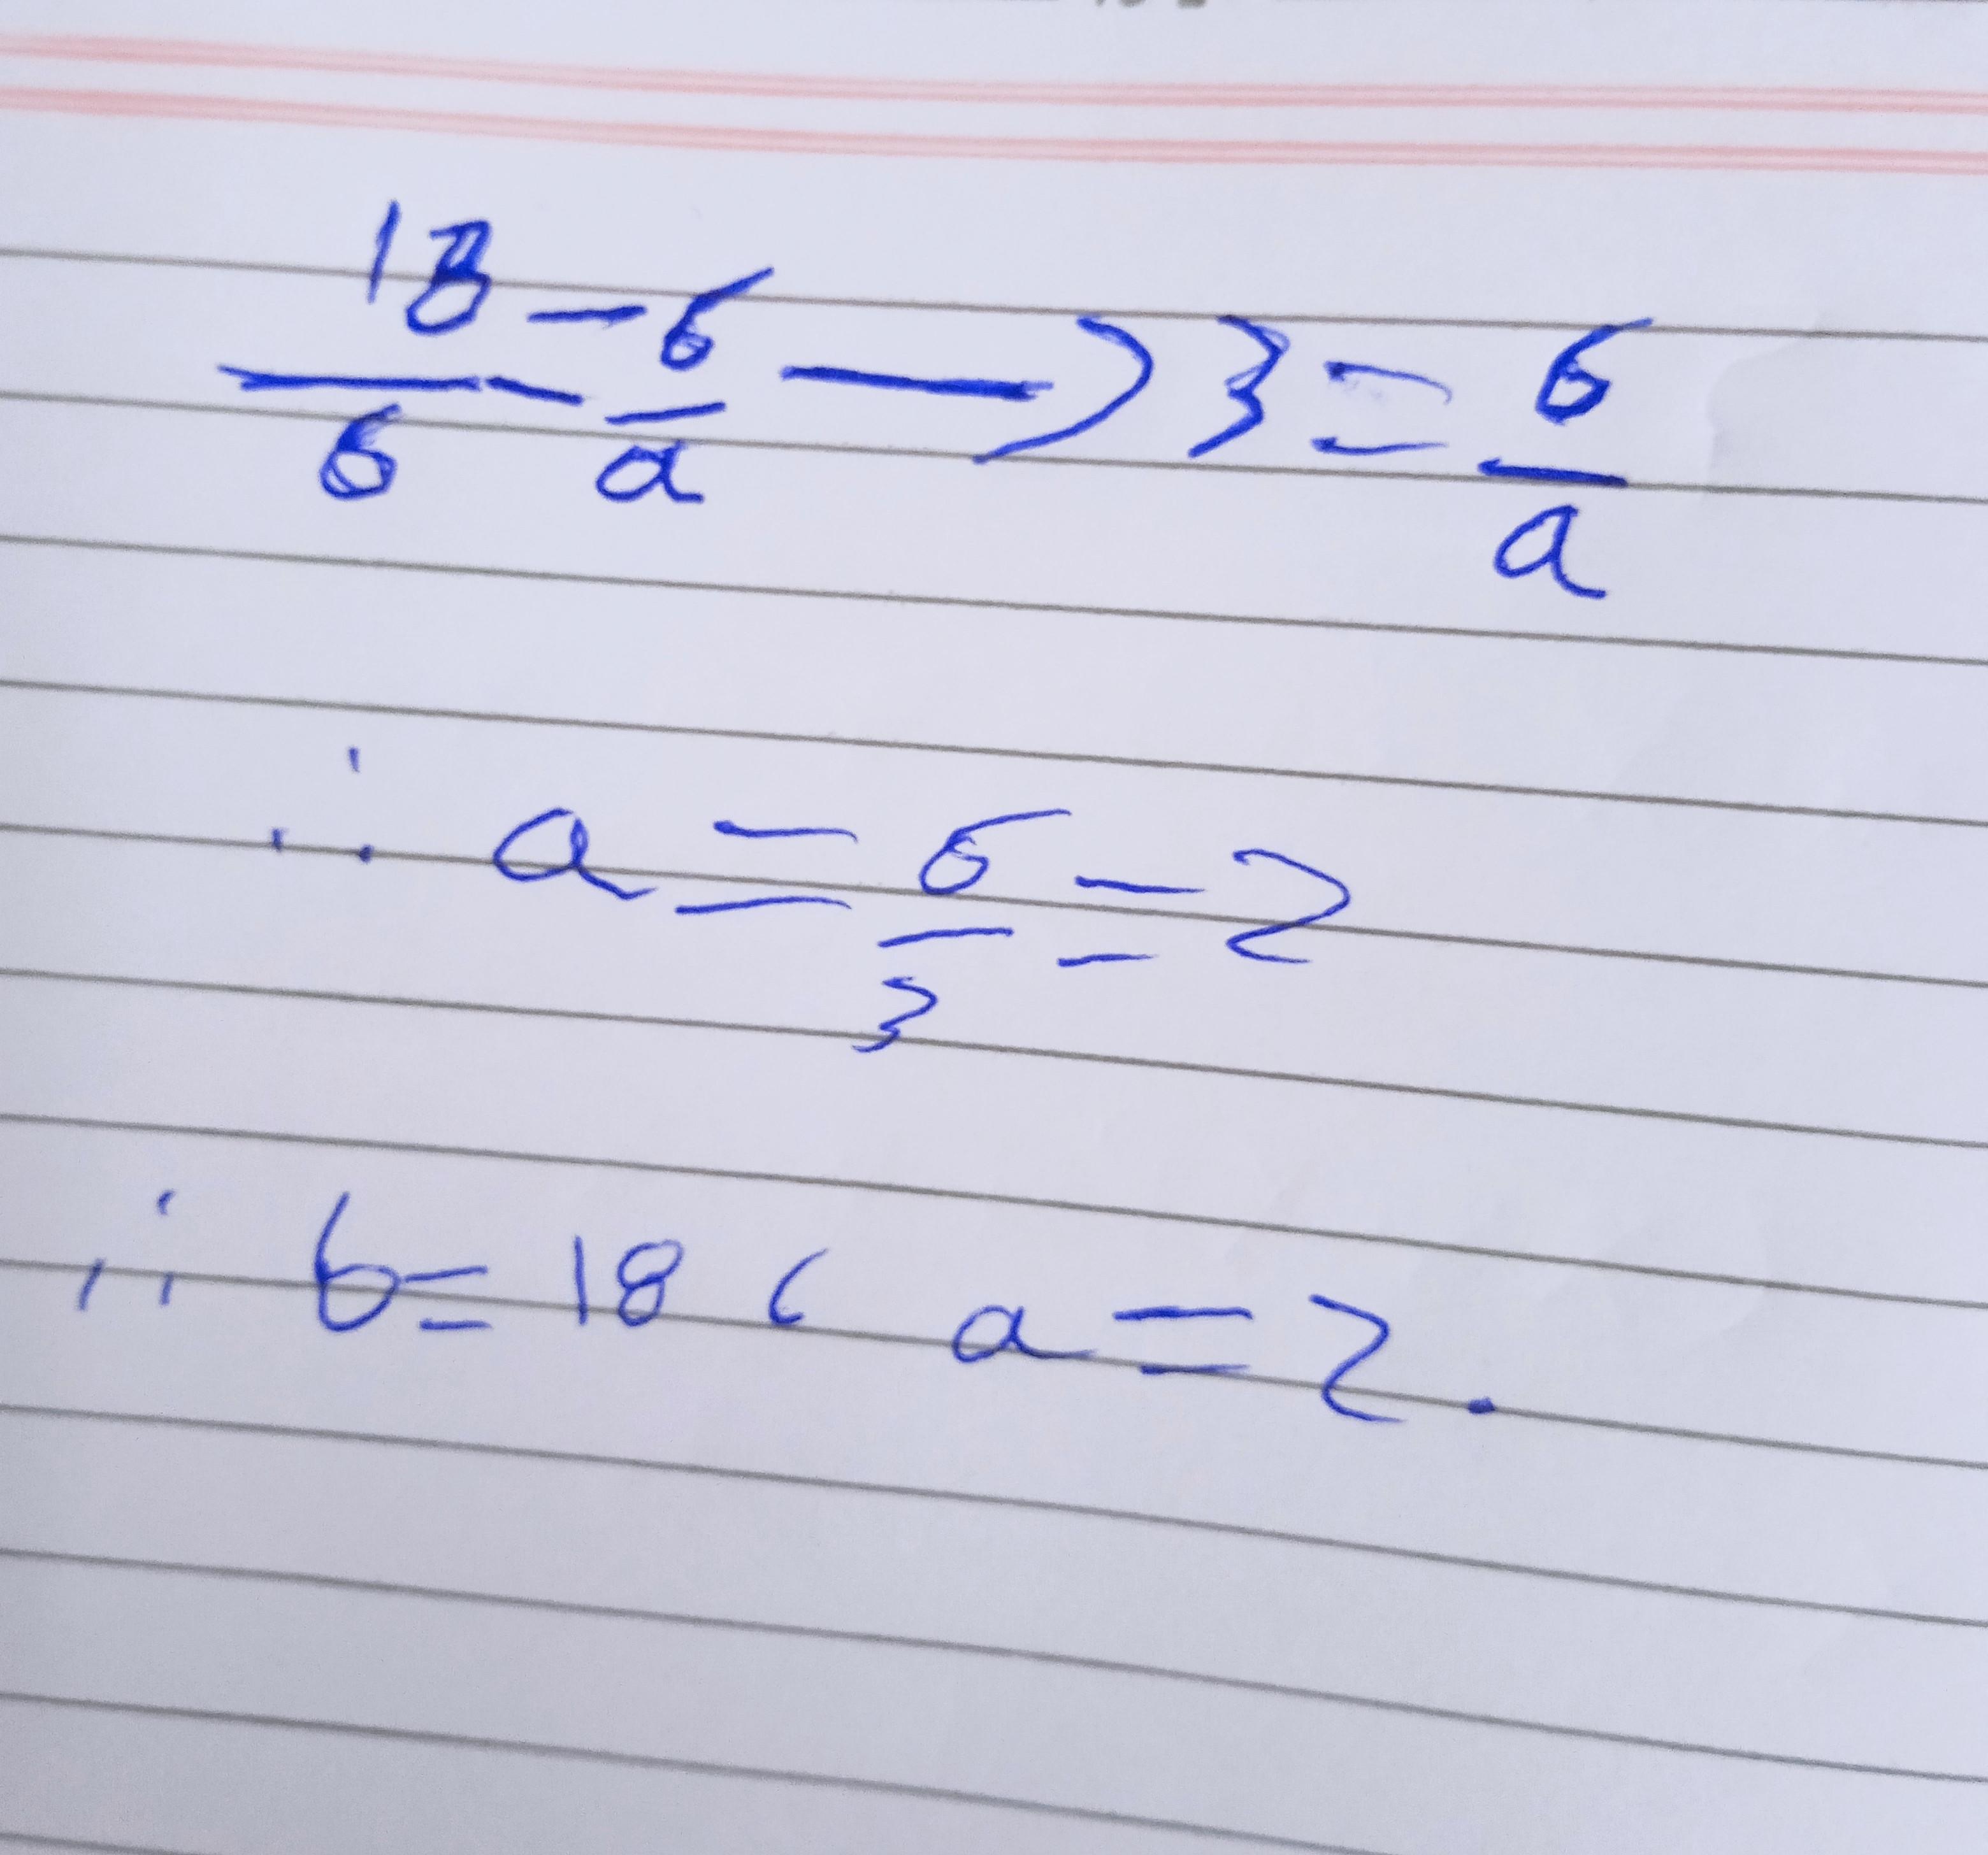 18/6 = 6/a → 3 = 6/a
∴ a = 6/3 = 2
∴ b = 18 , a = 2.